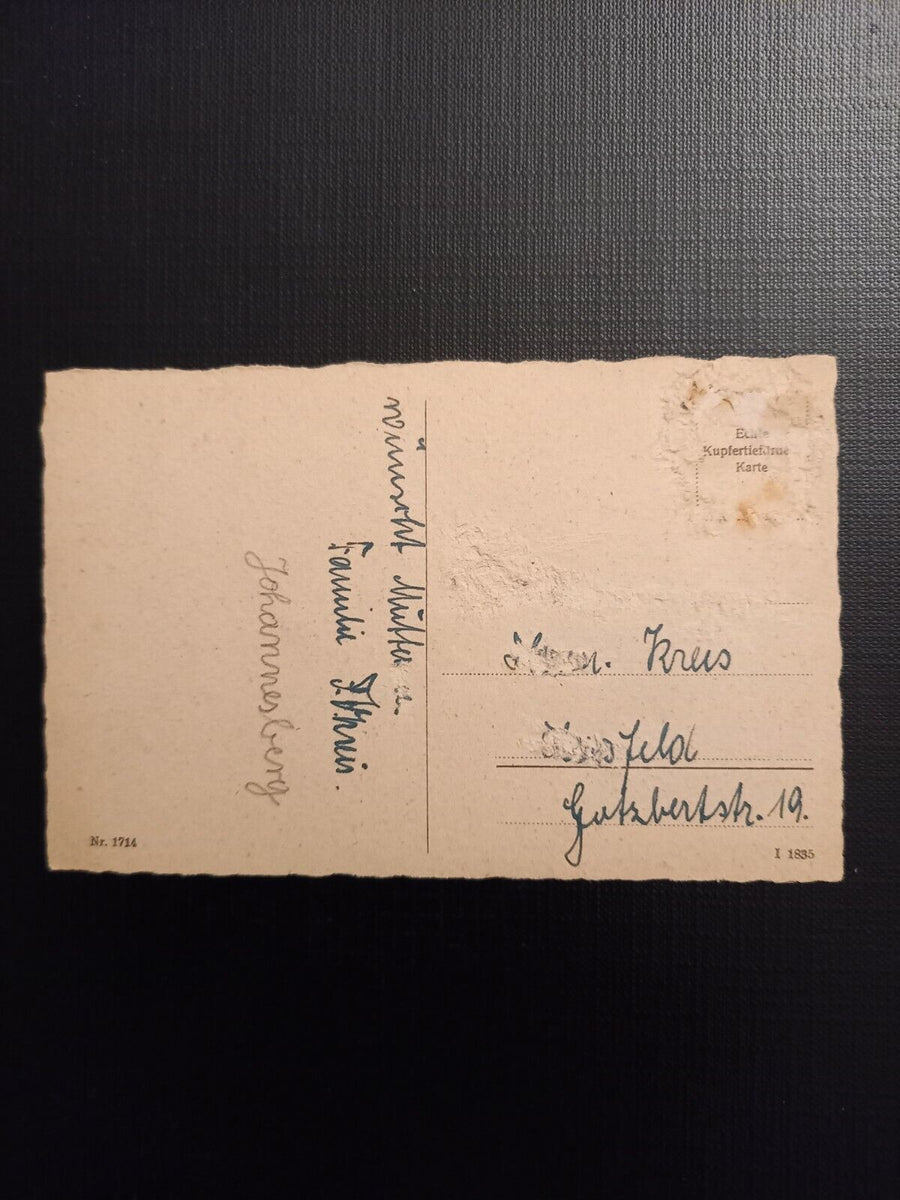 wünscht Mutter u.
Familie J. Kreis.
Johannesberg
Echte
Kupfertiefdruck
Karte
Kreis
Hersfeld
Gotzbertstr. 19.
Nr. 1714
I 1835